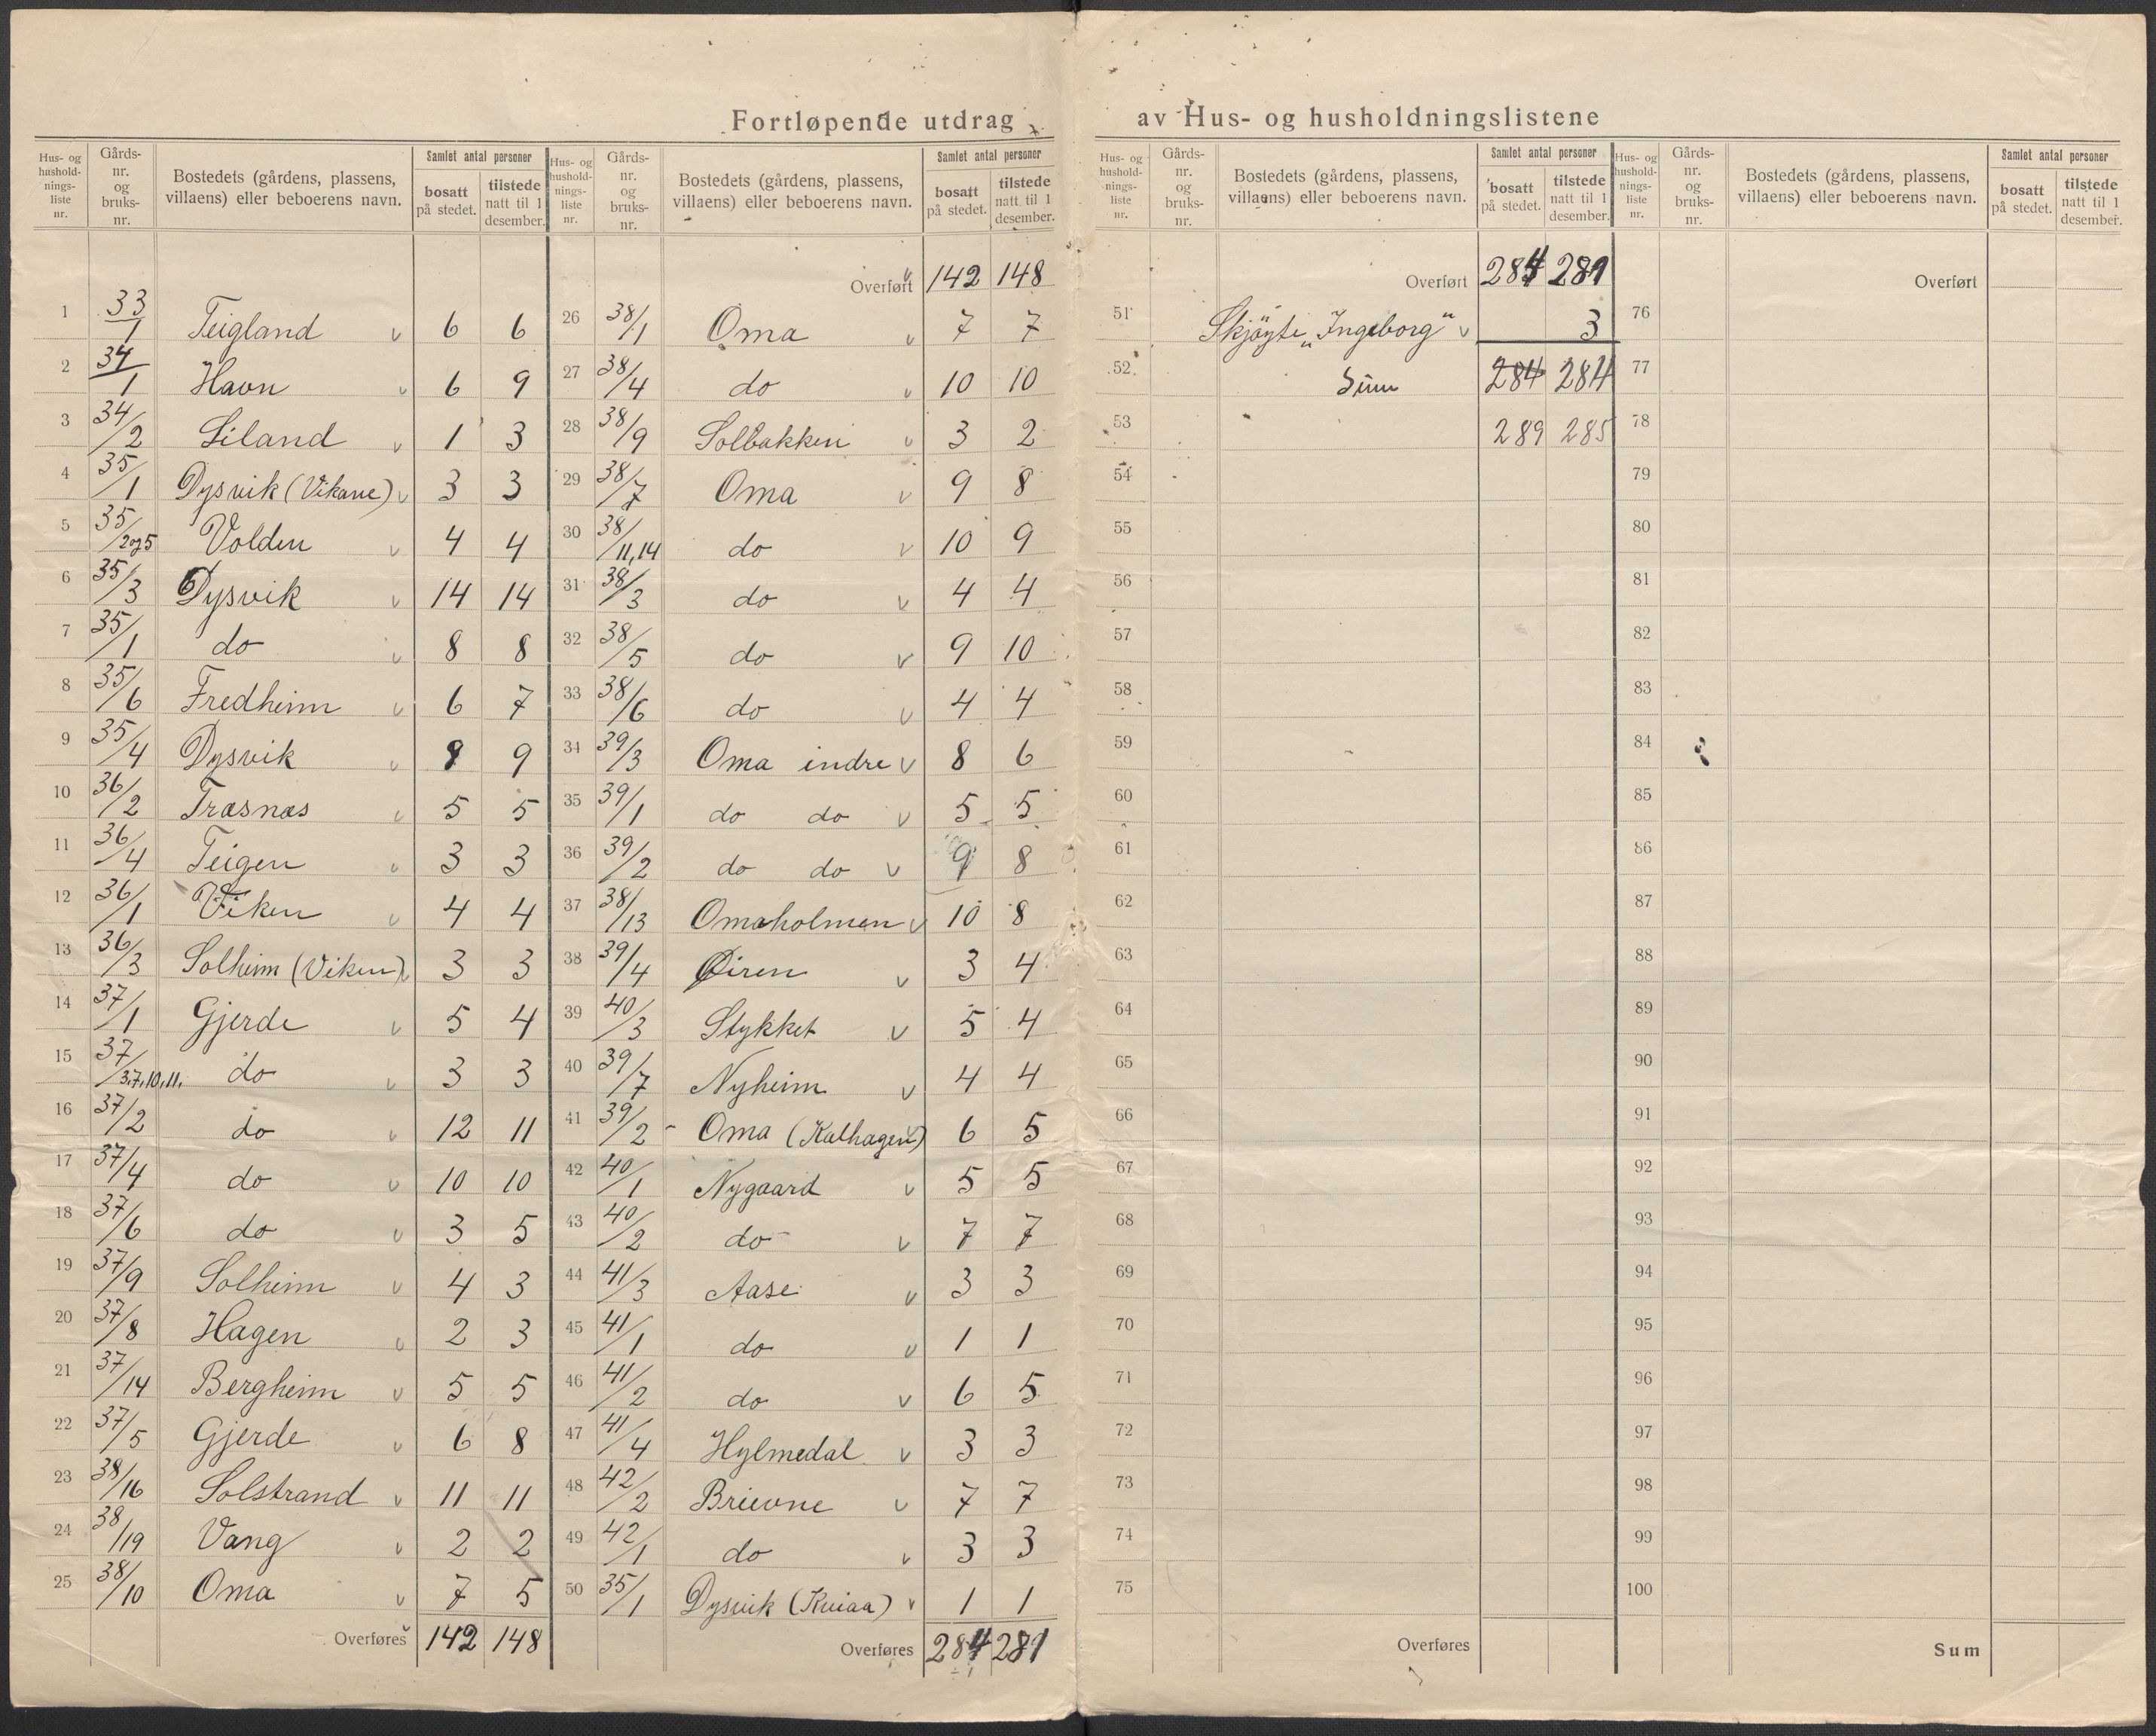 Fortløpende utdrag av Hus- og husholdningslistene
Hus- og husholdnings-liste nr. | Gårds-nr. og bruks-nr. | Bostedets (gårdens, plassens, villaens) eller beboerens navn. | Samlet antal personer | bosatt på stedet. | tilstede natt til 1 desember.
1 33/1 Teigland v 6 6
2 34/1 Havn v 6 9
3 34/2 Liland v 1 3
4 35/1 Dysvik (Vikane) v 3 3
5 35/2og5 Volden v 4 4
6 35/3 Dysvik v 14 14
7 35/1 do v 8 8
8 35/6 Fredheim v 6 7
9 35/4 Dysvik v 8 9
10 36/2 Træsnæs v 5 5
11 36/4 Teigen v 3 3
12 36/1 Viken v 4 4
13 36/3 Solheim (Viken) v 3 3
14 37/1 Gjerde v 5 4
15 37/3,7,10,11, do v 3 3
16 37/2 do v 12 11
17 37/4 do v 10 10
18 37/6 do v 3 5
19 37/9 Solheim v 4 3
20 37/8 Hagen v 2 3
21 37/14 Bergheim v 5 5
22 37/5 Gjerde v 6 8
23 38/16 Solstrand v 11 11
24 38/19 Vang v 2 2
25 38/10 Oma v 7 5
Overføres 142 148
Hus- og hushold-nings-liste nr. | Gårds-nr. og bruks-nr. | Bostedets (gårdens, plassens, villaens) eller beboerens navn. | Samlet antal personer | bosatt på stedet. | tilstede natt til 1 desember.
Overført 142 148
26 38/1 Oma v 7 7
27 38/4 do v 10 10
28 38/9 Solbakken v 3 2
29 38/7 Oma v 9 8
30 38/11,14 do v 10 9
31 38/3 do v 4 4
32 38/5 do v 9 10
33 38/6 do v 4 4
34 39/3 Oma indre v 8 6
35 39/1 do do v 5 5
36 39/2 do do v 9 8
37 38/13 Omaholmen v 10 8
38 39/4 Øiren v 3 4
39 40/3 Stykket v 5 4
40 39/7 Nyheim v 4 4
41 39/2 Oma (Kalhagen) 6 5
42 40/1 Nygaard v 5 5
43 40/2 do v 7 7
44 41/3 Aase v 3 3
45 41/1 do v 1 1
46 41/2 do v 6 5
47 41/4 Hylmedal v 3 3
48 42/2 Brievne v 7 7
49 42/1 do v 3 3
50 35/1 Dysvik (Kviaa) v 1 1
Overføres 284 281
Hus- og hushold-nings-liste nr. | Gårds-nr. og bruks-nr. | Bostedets (gårdens, plassens, villaens) eller beboerens navn. | Samlet antal personer | bosatt på stedet. | tilstede natt til 1 desember.
Overført 284 281
51 Skjøyte "Ingeborg" v 3
52 Sum 284 284
53 289 285
54
55
56
57
58
59
60
61
62
63
64
65
66
67
68
69
70
71
72
73
74
75
Overføres
Hus- og hushold-nings-liste nr. | Gårds-nr. og bruks-nr. | Bostedets (gårdens, plassens, villaens) eller beboerens navn. | Samlet antal personer | bosatt på stedet. | tilstede natt til 1 desember.
Overført
76
77
78
79
80
81
82
83
84
85
86
87
88
89
90
91
92
93
94
95
96
97
98
99
100
Sum